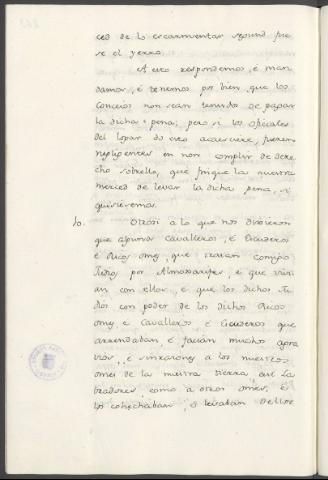 ced de lo escarmentar segund fue
se el yerro.
A esto respondemos, é man
damos, é tenemos por bien, que los
Conceios non sean tenudos de pagar
la dicha pena; pero si los oficiales
del logar do esto acaesciere, fueren
negligentes en non complir de dere
cho sobrello, que finque la nuestra
merced de levar la dicha pena, si
quisieremos.
10. Otrosi a lo que nos dixieron
que algunos Cavalleros, é Escuderos
é Ricos omes, que traian consigo
Judios por Almoxarifes, e que vivi
an con ellos, e que los dichos Ju
dios con poder de los dichos Ricos
omes é Cavalleros é Escuderos que
arrendaban, é facian muchos agra
vios, é sinrazones a los nuestros
omes de la nuestra tierra, asi La
bradores, como a otros omes, é
los cohechaban, é levaban dellos